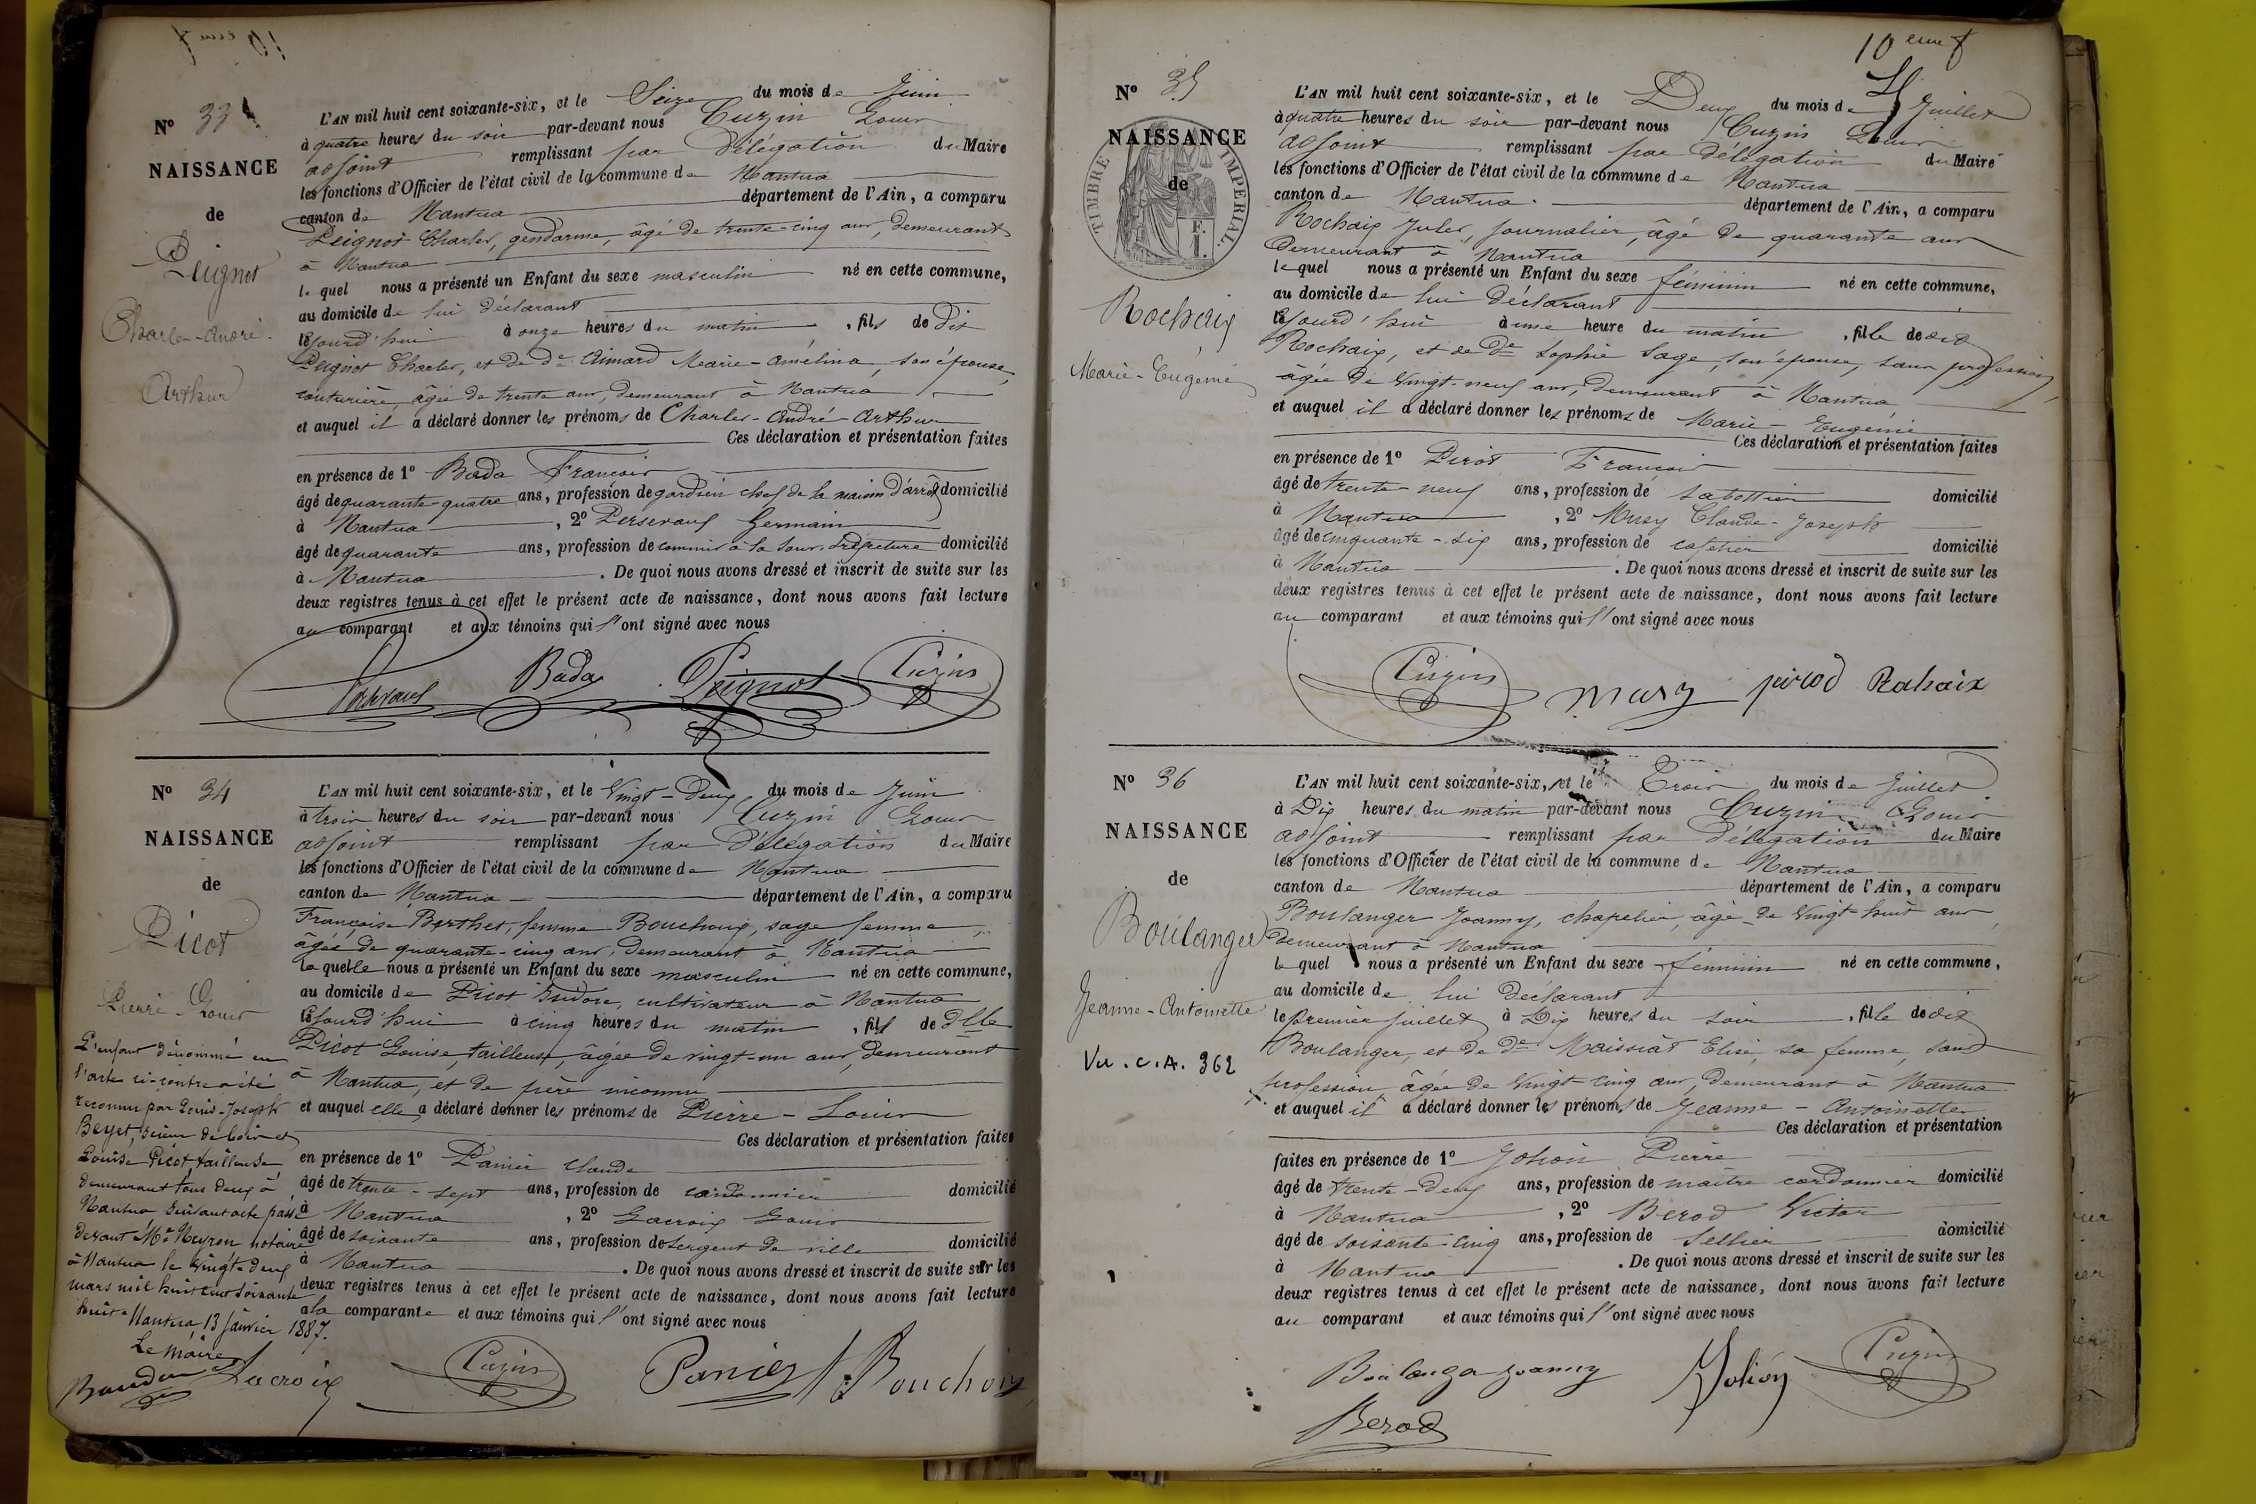 N° 33
NAISSANCE
de
Peignot
Charles-André-
Arthur
L'AN mil huit cent soixante-six, et le Seize du mois de Juin
à quatre heures du soir par-devant nous Cuzin Louis
adjoint remplissant par délégation du Maire
les fonctions d'Officier de l'état civil de la commune de Nantua
canton de Nantua département de l'Ain, a comparu
Peignot Charles, gendarme, âgé de trente-cinq ans, demeurant
à Nantua
le quel nous a présenté un Enfant du sexe masculin né en cette commune,
au domicile de lui déclarant
jourd'hui à onze heures du matin, fils de dit
Peignot Charles, et de de Aimard Marie-Amélina, son épouse,
couturière, âgée de trente ans, demeurant à Nantua
et auquel il a déclaré donner les prénoms de Charles-André-Arthur
Ces déclaration et présentation faites
en présence de 1° Bada François
âgé de quarante-quatre ans, profession de gardien chef de la maison d'arrêt domicilié
à Nantua, 2° Perseraus Germain
âgé de quarante ans, profession de commis à la Sous-Préfecture domicilié
à Nantua. De quoi nous avons dressé et inscrit de suite sur les
deux registres tenus à cet effet le présent acte de naissance, dont nous avons fait lecture
au comparant et aux témoins qui l'ont signé avec nous
Bada Peignot Cuzin
N° 34
NAISSANCE
de
Picot
Pierre-Louis
L'AN mil huit cent soixante-six, et le Vingt-Deux du mois de Juin
à trois heures du soir par-devant nous Cuzin Louis
adjoint remplissant par délégation du Maire
les fonctions d'Officier de l'état civil de la commune de Nantua
canton de Nantua département de l'Ain, a comparu
Françoise Berthet, femme Bouchoux, sage femme,
âgée de quarante-cinq ans, demeurant à Nantua
la quelle nous a présenté un Enfant du sexe masculin né en cette commune,
au domicile de Picot Isidore, cultivateur à Nantua
jourd'hui à cinq heures du matin, fils de Dlle
Picot Louise, tailleuse, âgée de vingt-un ans, demeurant
à Nantua, et de père inconnu
et auquel elle a déclaré donner les prénoms de Pierre-Louis
Ces déclaration et présentation faites
en présence de 1° Panier Claude
âgé de trente-sept ans, profession de cordonnier domicilié
à Nantua, 2° Lacroix Louis
âgé de soixante ans, profession de sergent de ville domicilié
à Nantua. De quoi nous avons dressé et inscrit de suite sur les
deux registres tenus à cet effet le présent acte de naissance, dont nous avons fait lecture
a la comparante et aux témoins qui l'ont signé avec nous
L'enfant dénommé en
l'acte ci-contre a été
reconnu par Denis-Joseph
Beyet, scieur de bois et
Louise Picot, tailleuse,
demeurant tous deux à
Nantua suivant acte passé
devant Me Neyron notaire
à Nantua le vingt-deux
mars mil huit cent soixante
huit - Nantua, 13 Janvier 1887.
Le Maire
Lacroix Cuzin Panier f. Bouchoux
10 eme f
N° 35
NAISSANCE
de
TIMBRE IMPERIAL
F.
1.
Rochaix
Marie-Eugénie
L'AN mil huit cent soixante-six, et le Deux du mois de Juillet
à quatre heures du soir par-devant nous Cuzin Louis
adjoint remplissant par délégation du Maire
les fonctions d'Officier de l'état civil de la commune de Nantua
canton de Nantua. département de l'Ain, a comparu
Rochaix Jules, journalier, âgé de quarante ans
demeurant à Nantua
le quel nous a présenté un Enfant du sexe féminin né en cette commune,
au domicile de lui déclarant
jourd'hui à une heure du matin, fille de dit
Rochaix, et de de Sophie Sage, son épouse, sans profession,
âgée de vingt-neuf ans, demeurant à Nantua
et auquel il a déclaré donner les prénoms de Marie-Eugénie
Ces déclaration et présentation faites
en présence de 1° Pirod François
âgé de trente-neuf ans, profession de sabottier domicilié
à Nantua, 2° Musy Claude-Joseph
âgé de cinquante-six ans, profession de cafetier domicilié
à Nantua. De quoi nous avons dressé et inscrit de suite sur les
deux registres tenus à cet effet le présent acte de naissance, dont nous avons fait lecture
au comparant et aux témoins qui l'ont signé avec nous
Cuzin musy pirod Rahaix
N° 36
NAISSANCE
de
Boulanger
Jeanne-Antoinette
Vu. C.A. 362
L'AN mil huit cent soixante-six, et le Trois du mois de Juillet
à Dix heures du matin par-devant nous Cuzin Louis
adjoint remplissant par délégation du Maire
les fonctions d'Officier de l'état civil de la commune de Nantua
canton de Nantua département de l'Ain, a comparu
Boulanger Joanny, chapelier, âgé de vingt-huit ans,
demeurant à Nantua
le quel nous a présenté un Enfant du sexe féminin né en cette commune,
au domicile de lui déclarant
le premier juillet à Dix heures du soir, fille de dit
Boulanger, et de de Maissiat Elise, sa femme, sans
profession, âgée de vingt-cinq ans, demeurant à Nantua
et auquel il a déclaré donner les prénoms de Jeanne-Antoinette
Ces déclaration et présentation
faites en présence de 1° Johon Pierre
âgé de trente-deux ans, profession de maître cordonnier domicilié
à Nantua, 2° Berod Victor
âgé de soixante-cinq ans, profession de sellier domicilié
à Nantua. De quoi nous avons dressé et inscrit de suite sur les
deux registres tenus à cet effet le présent acte de naissance, dont nous avons fait lecture
au comparant et aux témoins qui l'ont signé avec nous
Boulanger Joanny Johon Cuzin
Berod